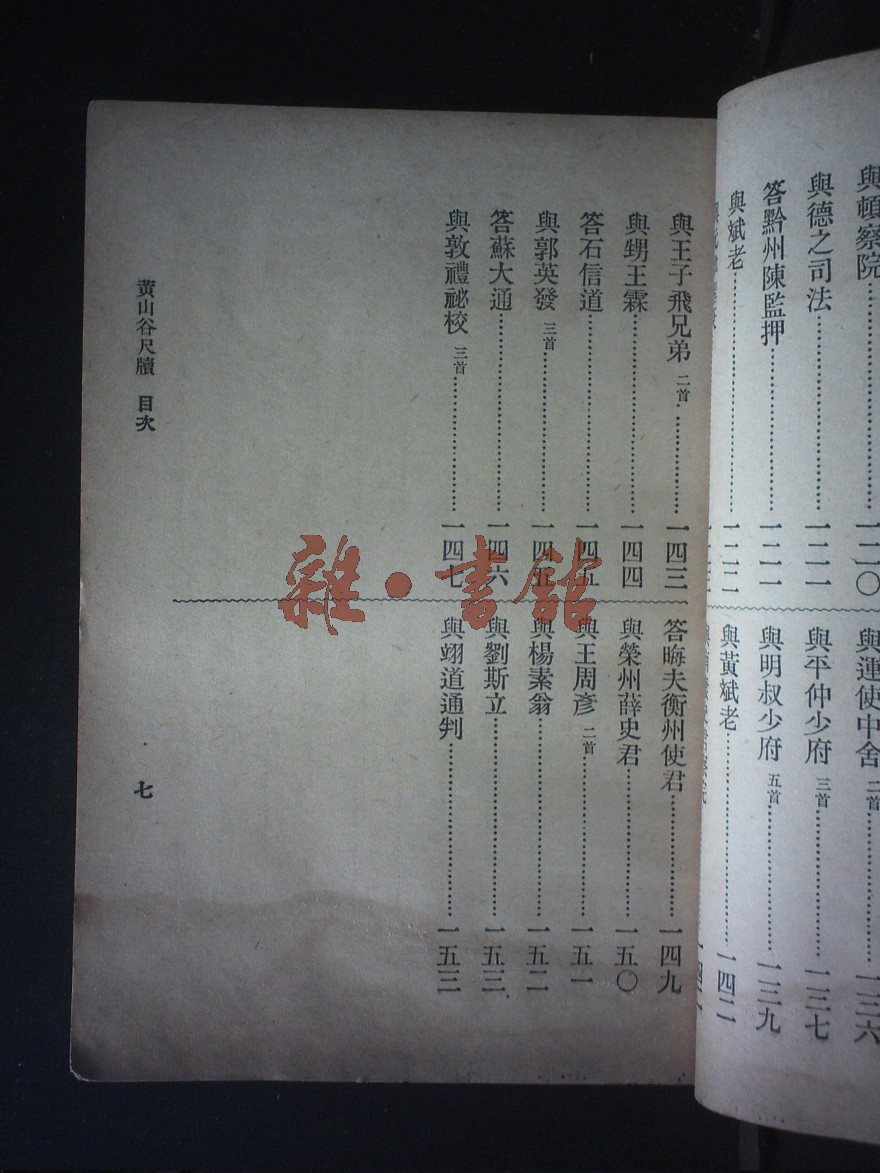 與頓察院……一二〇
與德之司法……一二一
答黔州陳監押……一二一
與斌老……一二二
與運使中舍 二首……一三六
與平仲少府 三首……一三七
與明叔少府 五首……一三九
與黃斌老……一四二
與王子飛兄弟 二首……一四三
與甥王霖……一四四
答石信道……一四五
與郭英發 三首……一四五
答蘇大通……一四六
與敦禮祕校 三首……一四七
答晦夫衡州使君……一四九
與榮州薛史君……一五〇
與王周彥 二首……一五一
與楊素翁……一五二
與劉斯立……一五三
與翊道通判……一五三
黃山谷尺牘 目次
七
雜·書館